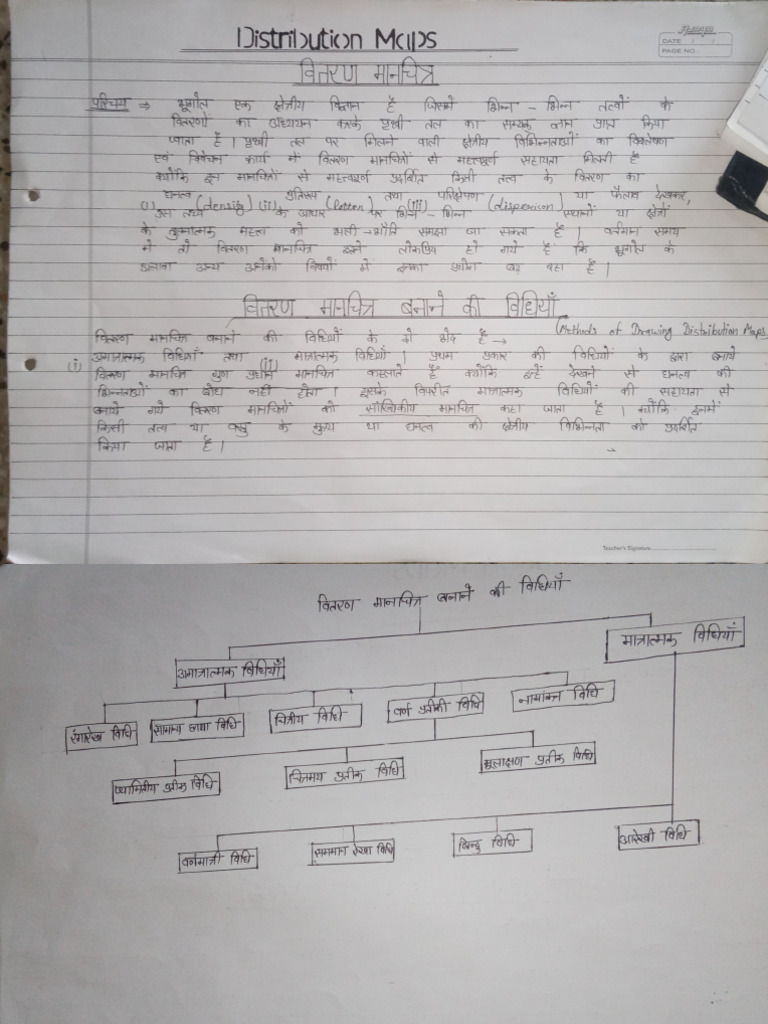 Distribution Maps
DATE / /
PAGE NO.
वितरण मानचित्र
परिचय ⇒ भूगोल एक क्षेत्रीय विज्ञान है जिसमें भिन्न - भिन्न तत्वों के
वितरणों का अध्ययन करके पृथ्वी तल का सम्यक ज्ञान प्राप्त किया
जाता है । पृथ्वी तल पर मिलने वाली क्षेत्रीय विभिन्नताओं का विश्लेषण
एवं विवेचन कार्य में वितरण मानचित्रों से महत्वपूर्ण सहायता मिलती है
क्योंकि इन मानचित्रों से महत्वपूर्ण प्रदर्शित किसी तत्व के वितरण का
घनत्व प्रतिरूप तथा परिक्षेपण या फैलाव देखकर,
(i) उस तथ्य (density) (ii) के आधार (Pattern) पर भिन्न (iii) - भिन्न (dispersion) स्थानों या क्षेत्रों
के तुलनात्मक महत्व को भली-भाँति समझा जा सकता है । वर्तमान समय
में तो वितरण मानचित्र इतने लोकप्रिय हो गये हैं कि भूगोल के
अलावा अन्य अनेकों विषयों में इनका प्रयोग बढ़ रहा है ।
वितरण मानचित्र बनाने की विधियाँ
(Methods of Drawing Distribution Maps)
वितरण मानचित्र बनाने की विधियों के दो भेद हैं →
(i) अमात्रात्मक विधियाँ तथा (ii) मात्रात्मक विधियाँ । प्रथम प्रकार की विधियों के द्वारा बनाये
वितरण मानचित्र गुण प्रधान मानचित्र कहलाते हैं क्योंकि इन्हें देखने से घनत्व की
भिन्नताओं का बोध नहीं होता । इसके विपरीत मात्रात्मक विधियों की सहायता से
बनाये गये वितरण मानचित्रों को सांख्यिकीय मानचित्र कहा जाता है । क्योंकि इनमें
किसी तत्व या वस्तु के मूल्य या घनत्व की क्षेत्रीय विभिन्नता को प्रदर्शित
किया जाता है ।
Teacher's Signature
वितरण मानचित्र बनाने की विधियाँ
अमात्रात्मक विधियाँ
मात्रात्मक विधियाँ
रंगारेख विधि
सामान्य छाया विधि
चित्रीय विधि
वर्ण प्रतीकी विधि
नामांकन विधि
ज्यामितीय प्रतीक विधि
चित्रमय प्रतीक विधि
मूलाक्षण प्रतीक विधि
वर्णमात्री विधि
सममान रेखा विधि
बिन्दु विधि
आरेखी विधि